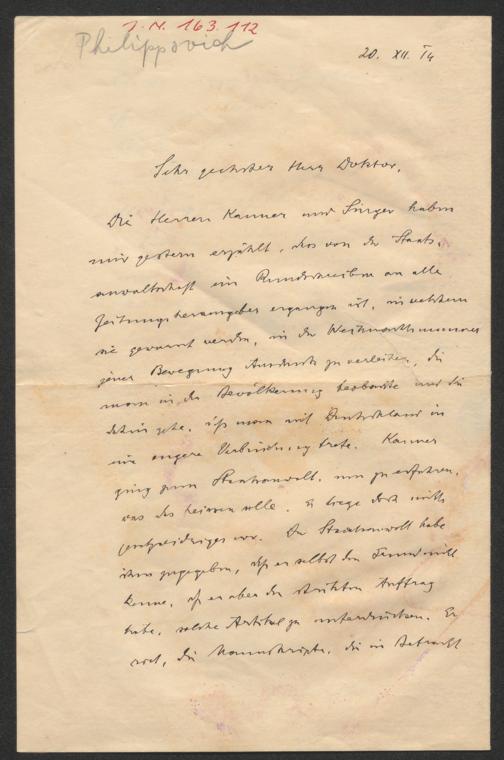 J. N. 163.112
Philippovich
20. XII. 14
Sehr geehrter Herr Doktor,
Die Herren Kanner und Singer haben
mir gestern erzählt, dass von der Staats-
anwaltschaft ein Rundschreiben an alle
Zeitungsherausgeber ergangen ist, in welchem
sie gewarnt werden, in der Weihnachtsnummer
jener Bewegung Ausdruck zu verleihen, die
man in der Bevölkerung beobachte und die
dahin gehe, dass man mit Deutschland in
eine engere Verbindung trete. Kanner
ging zum Staatsanwalt, um zu erfahren,
was das heissen solle, es liege doch nichts
vor. Der Staatsanwalt habe
ihm zugegeben, dass er selbst den Grund nicht
kenne, dass er aber den strikten Auftrag
habe, solche Artikel zu unterdrücken. Er
riet, die Manuskripte, die in Betracht